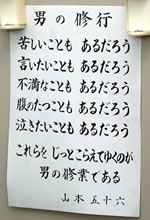 男の修行
苦しいことも あるだろう
言いたいことも あるだろう
不満なことも あるだろう
腹のたつことも あるだろう
泣きたいことも あるだろう
これらを じっとこらえてゆくのが
男の修業である
山本五十六